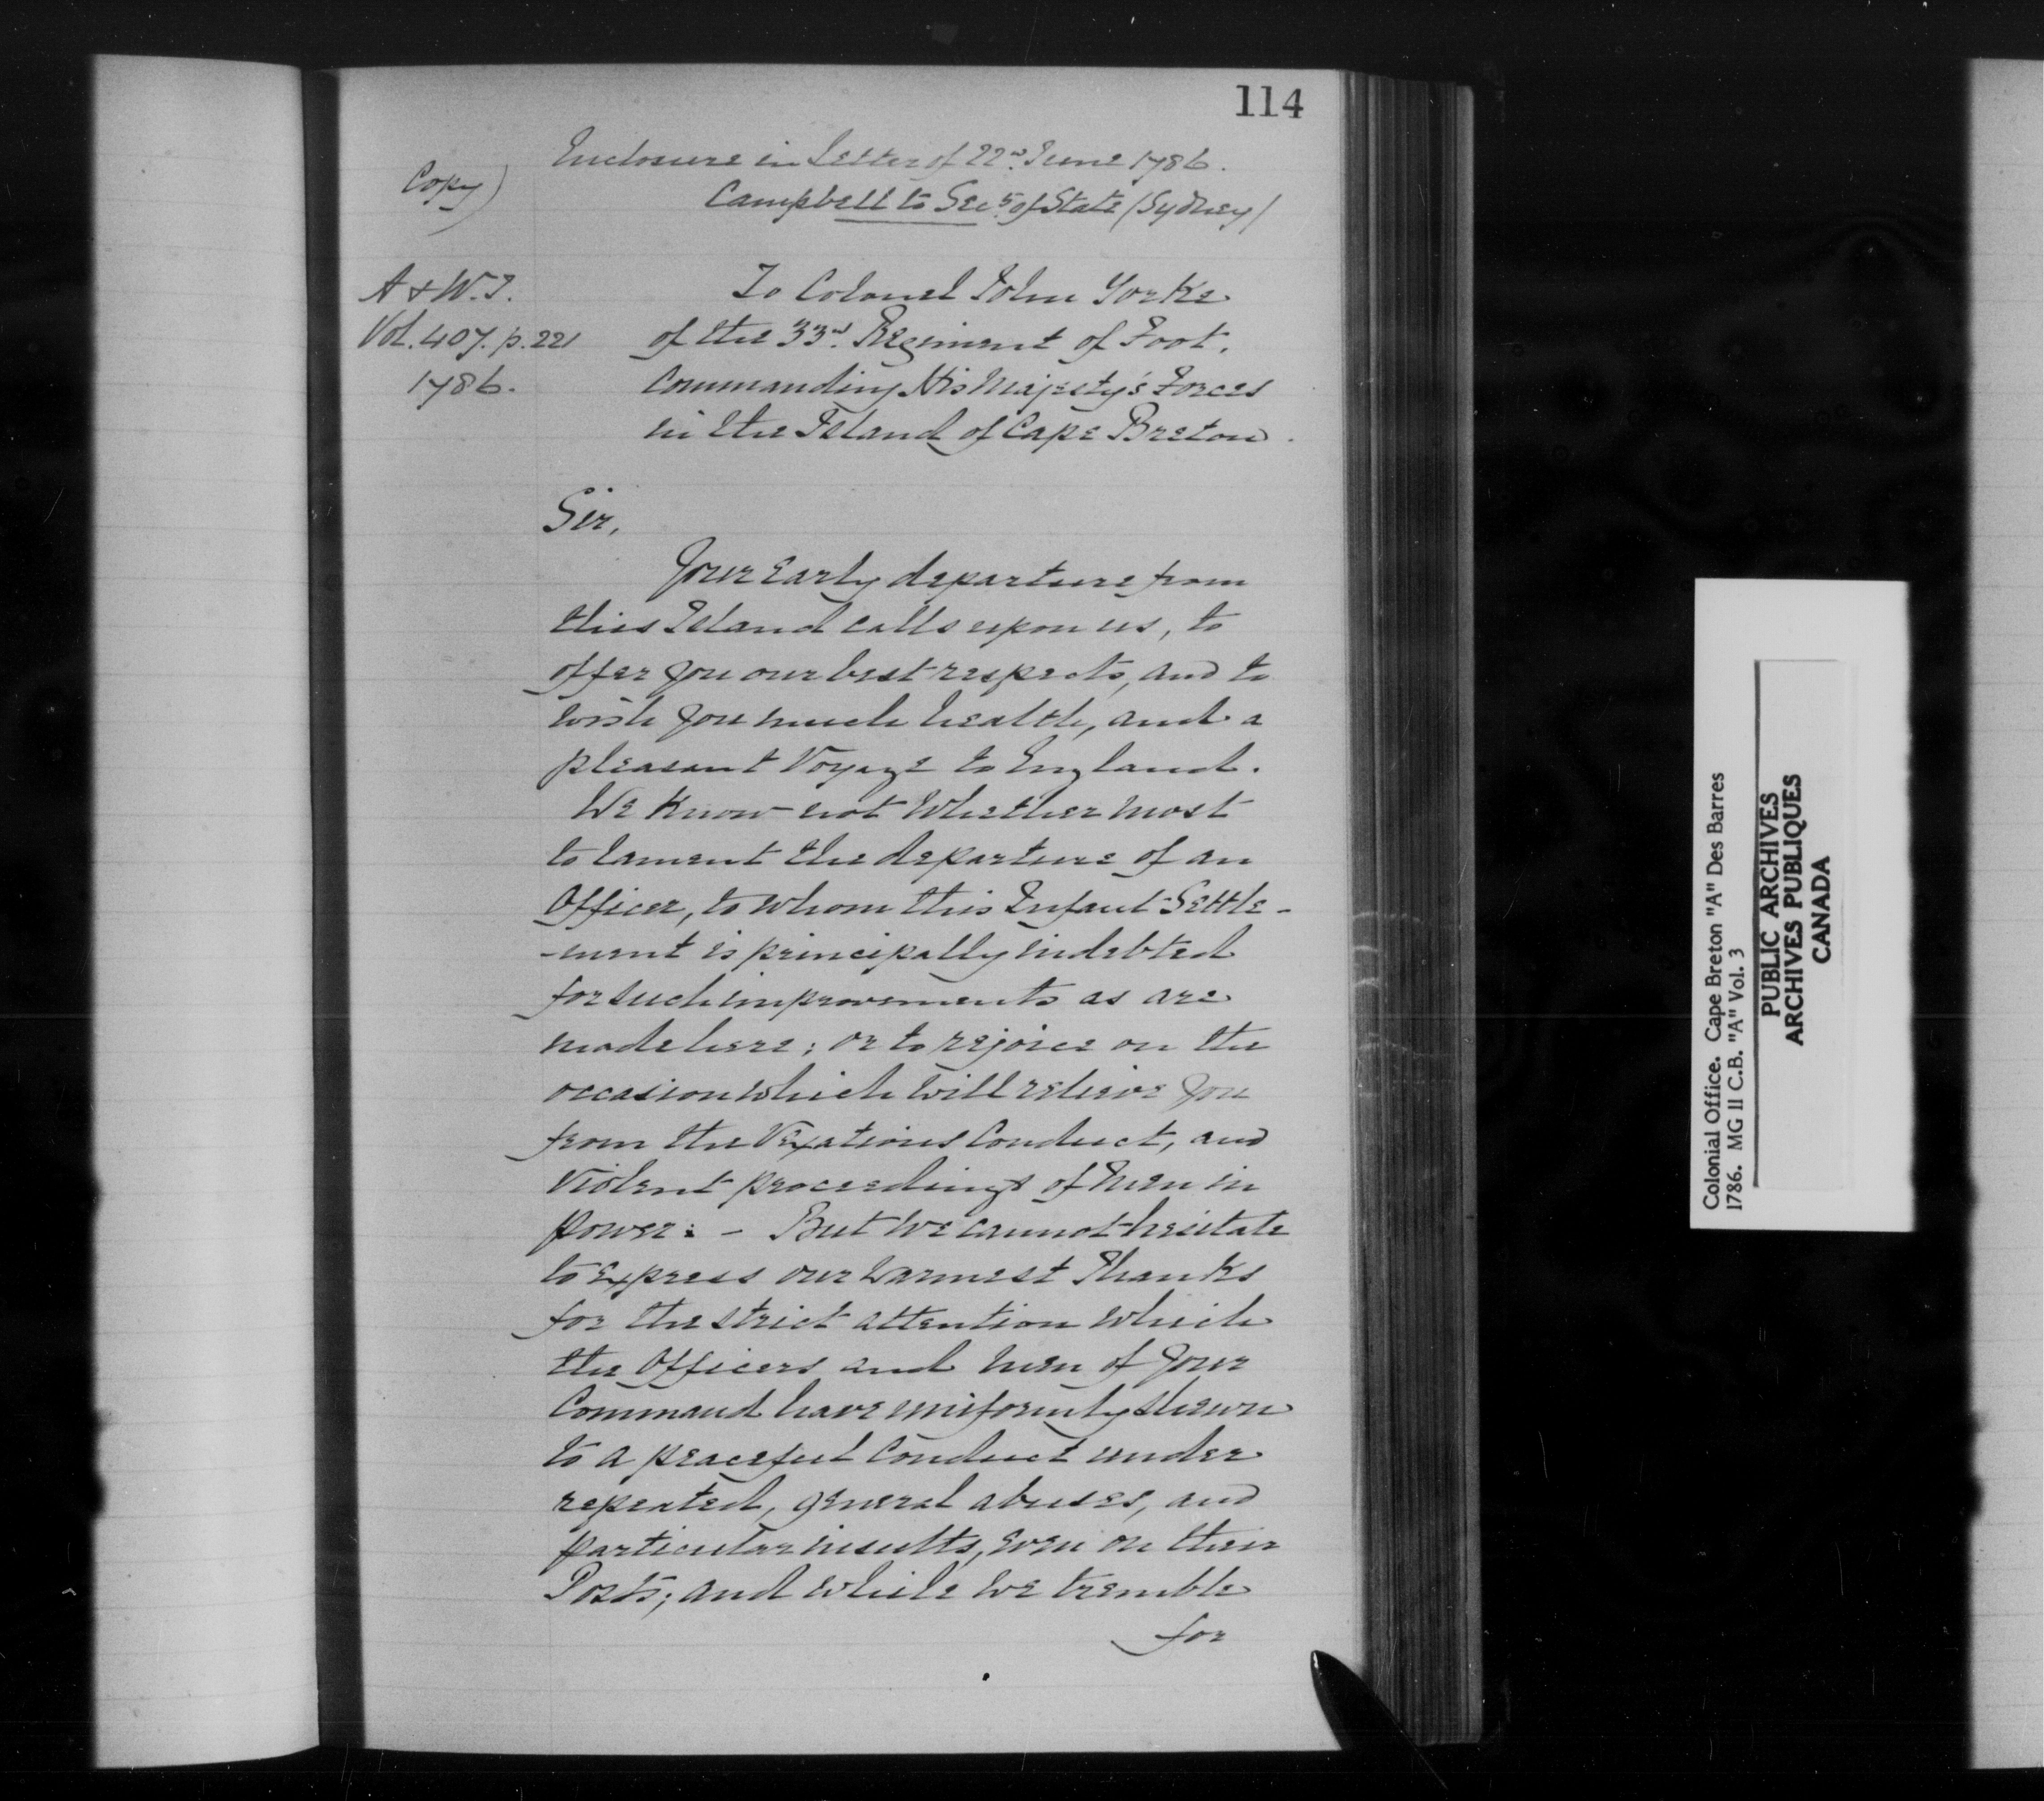 114
Enclosure in Letter of 22nd June 1786.
Copy)
Campbell to Secy of State (Sydney)
A & W.I.
Vol. 407. p. 221
1786.
To Colonel John Yorke
of the 33rd Regiment of Foot,
Commanding His Majesty's Forces
in the Island of Cape Breton.
Sir,
Your Early departure from
this Island calls upon us, to
offer you our best respects, and to
wish you much health, and a
pleasant Voyage to England.
We Know not Whether most
to lament the departure of an
Officer, to whom this Infant Settle-
-ment is principally indebted
for such improvements as are
made here; or to rejoice on the
occasion which will relieve you
from the Vexatious Conduct, and
Violent proceedings of Men in
power: - But we cannot hesitate
to Express our Warmest Thanks
for the strict attention which
the Officers and Men of Your
Command have uniformly shewn
to a peaceful Conduct under
repeated, general abuses, and
particular insults, even on their
Posts; and while we tremble
for
Colonial Office. Cape Breton "A" Des Barres
1786. MG II C.B. "A" Vol. 3
PUBLIC ARCHIVES
ARCHIVES PUBLIQUES
CANADA